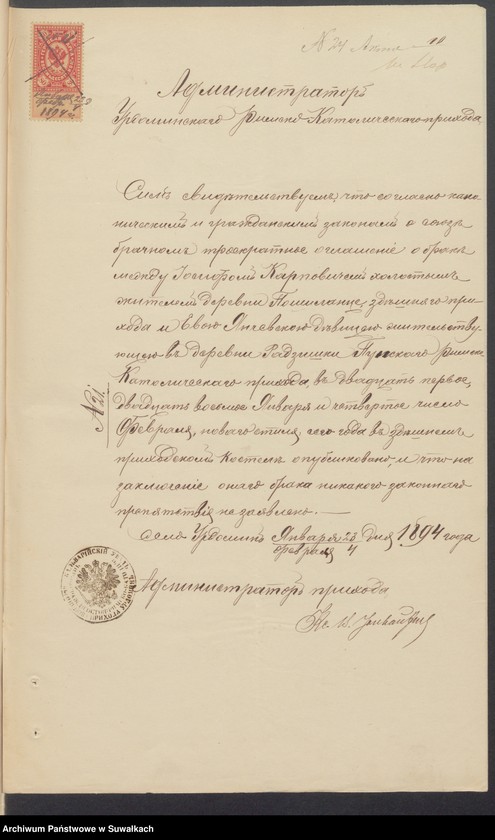 № 24
Администраторъ
Урдоминскаго Римско-Католическаго прихода
Симъ свидѣтельствуемъ, что согласно кано-
ническимъ и гражданскимъ законамъ о союзѣ
брачномъ троекратное оглашеніе о бракѣ
между Іосифомъ Карповичемъ холостымъ
жителемъ деревни здѣшняго при-
хода и Евою Янчевскою дѣвицею жительству-
ющею въ деревни Радзишки Пунскаго Римско-
Католическаго прихода, въ двадцать первое,
двадцать восьмое Января и четвертое число
Февраля, новаго стиля, сего года въ здѣшнемъ
приходскомъ Костелѣ опубликовано, и что на
заключеніе онаго брака никакого законнаго
препятствія не заявлено. —
Село Урдоминъ Января 23 дня 1894 года
Февраля 4
№ 21.
Администраторъ прихода
1894 г.
Archiwum Państwowe w Suwałkach